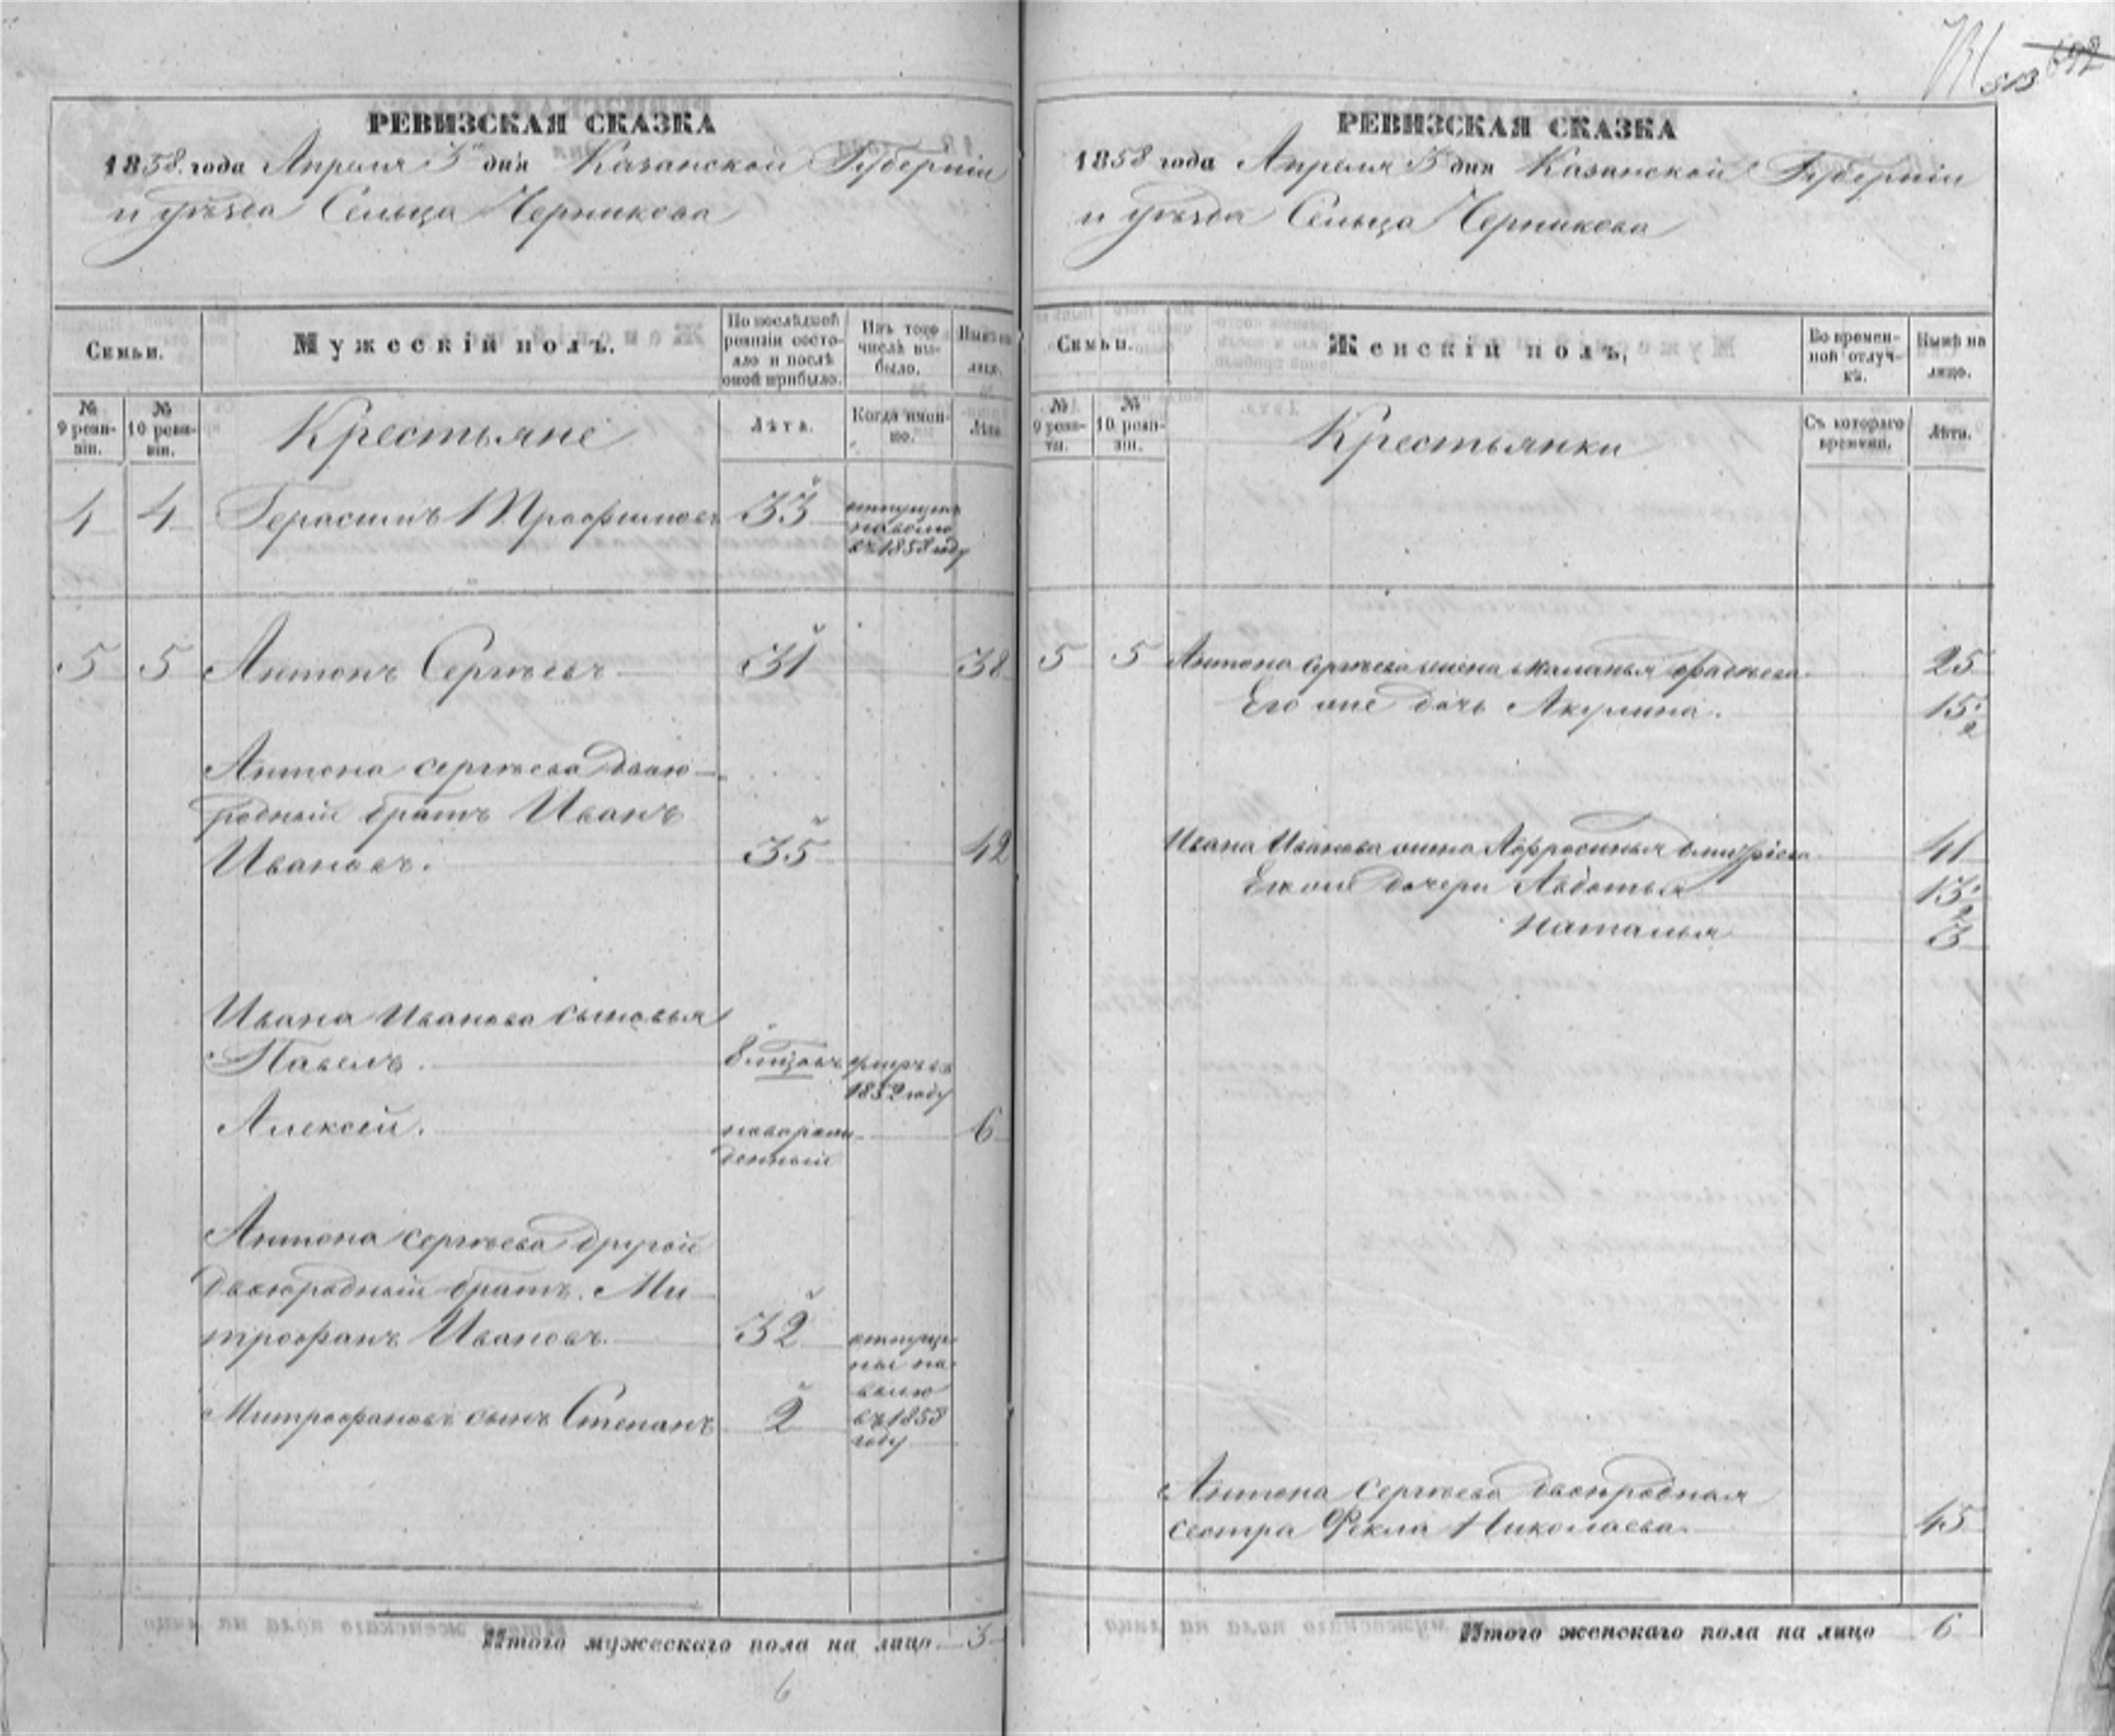 513 692
РЕВИЗСКАЯ СКАЗКА
1858 года Апреля 3 дня Казанской Губерніи
и уѣзда Сельца Черникова
Семьи.
Мужескій полъ.
По послѣдней ревизіи состояло и послѣ оной прибыло.
Изъ того числа выбыло.
Нынѣ на лицо.
№ 9 ревизіи.
№ 10 ревизіи.
Крестьяне
Лѣта.
Когда именно.
Лѣта.
4 4 Герасимъ Трофимовъ 33 отпущенъ
на волю
въ 1858 году
5 5 Антонъ Сергѣевъ 31 38
Антона Сергѣева двою-
родный братъ Иванъ
Ивановъ. 35 42
Ивана Иванова сыновья
Павелъ. 8 мѣсяц умръ въ
1852 году
Алексей. новорож- 6
денный
Антона Сергѣева другой
двоюродный братъ Ми-
трофанъ Ивановъ. 32 отпуще-
ны на
волю
Митрофановъ сынъ Степанъ 2 въ 1858
году
Итого мужескаго пола на лицо 3
6
РЕВИЗСКАЯ СКАЗКА
1858 года Апреля 3 дня Казанской Губерніи
и уѣзда Сельца Черникова
Семьи.
Женскій полъ.
Во временной отлучкѣ.
Нынѣ на лицо.
№ 9 ревизіи.
№ 10 ревизіи.
Крестьянки
Съ котораго времени.
Лѣта.
5 5 Антона Сергѣева жена Маланья Фадѣева 25
Его же дочь Акулина. 15 1/2
Ивана Иванова жена Афросинья Дмитріева 41
Его же дочери Авдотья 13 1/2
Наталья 3
Антона Сергѣева двоюродная
сестра Фекла Николаева. 45
Итого женскаго пола на лицо 6